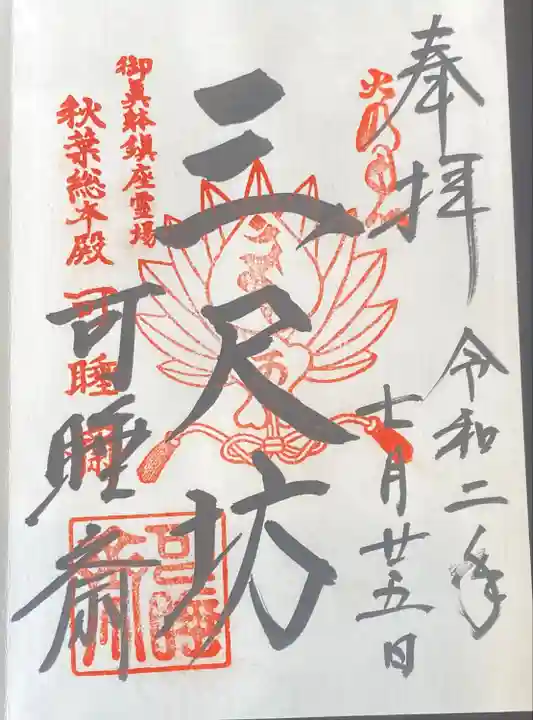 奉拝
令和二年
七月廿五日
三尺坊
御真躰鎮座霊場
秋葉総本殿可睡斎
可睡斎